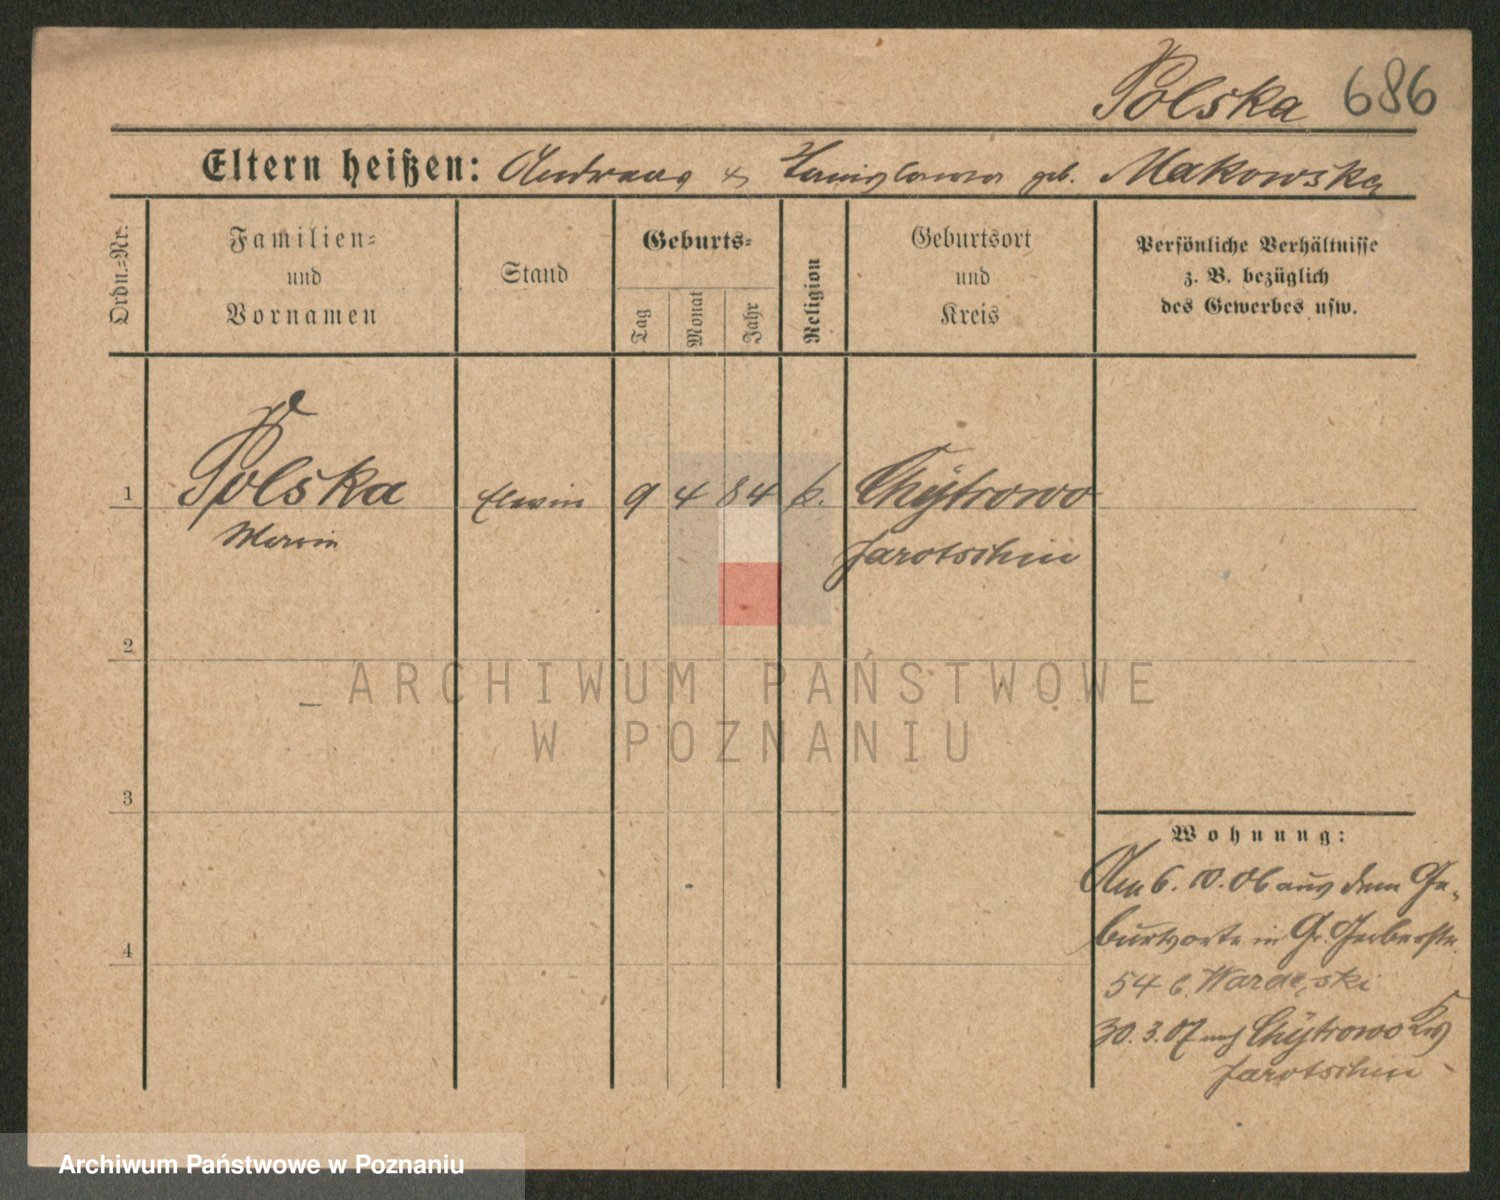 Polska 686
Eltern heißen: Andreas & Stanislawa geb. Makowska
Ordn.=Nr.
Familien=
und
Vornamen
Stand
Geburts=
Tag
Monat
Jahr
Religion
Geburtsort
und
Kreis
Persönliche Verhältnisse
z. B. bezüglich
des Gewerbes usw.
1 Polska 9 4 84 k. Chÿtrowo
Jarotschin
2
ARCHIWUM PAŃSTWOWE
W POZNANIU
3
Wohnung:
Am 6. 10. 06 aus dem Ge-
burtsorte in Gr. Gerberstr.
54 b.
4
30. 3. 07 nach Chÿtrowo Krs
Jarotschin
Archiwum Państwowe w Poznaniu